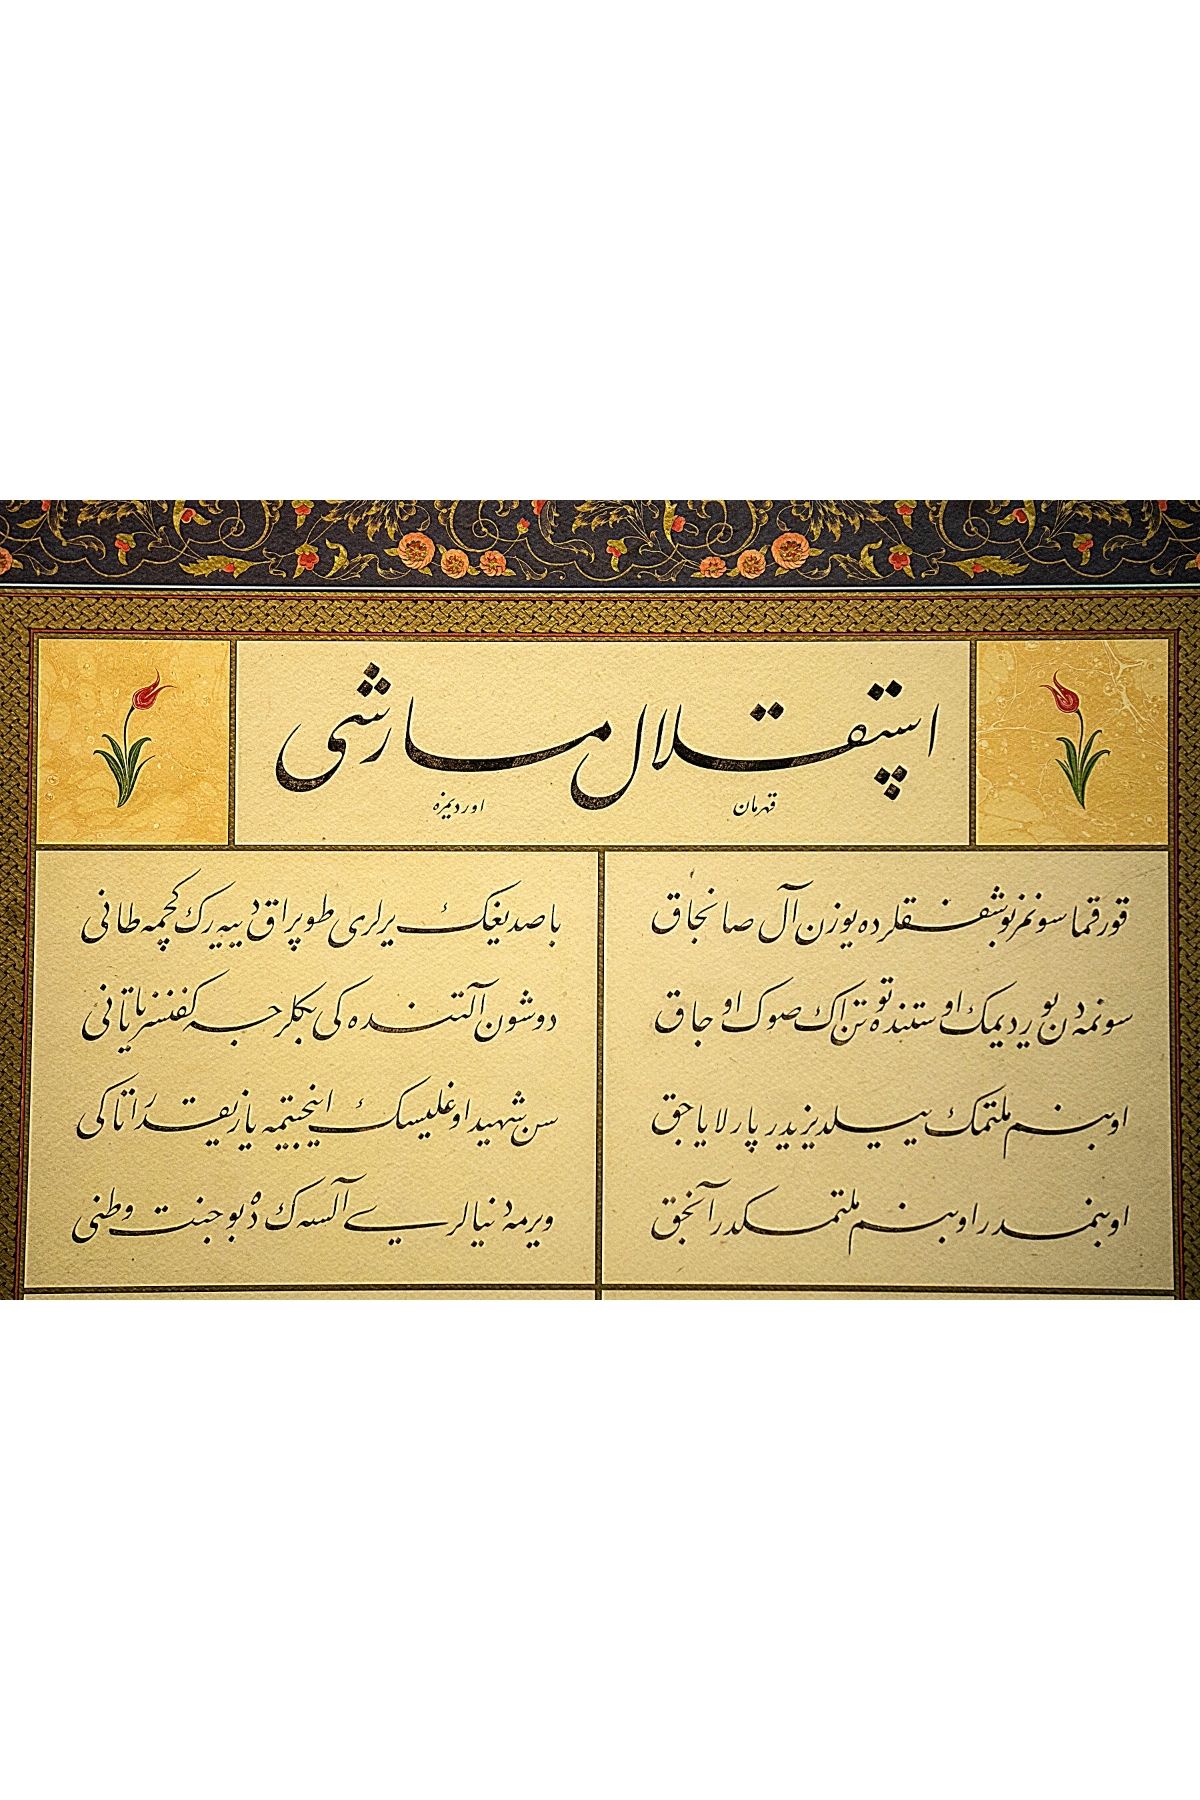 استقلال مارشی
قهرمان اوردیمزه
قورقما سونمز بو شفقلرده یوزن آل صانجاق
سونمه دن یوردیمك اوستنده توتن اڭ صوڭ اوجاق
او بنم ملتمك ییلدیزیدر پارلایاجق
او بنمدر او بنم ملتمكدر آنجق
باصدیغڭ یرلری طوپراق دییه رك كچمه طانی
دوشون آلتنده كی بیڭلرجه كفنسز یاتانی
سن شهید اوغلیسڭ اینجیتمه یازیقدر آتاڭی
ویرمه دنیالری آلسه ڭ ده بو جنت وطنی